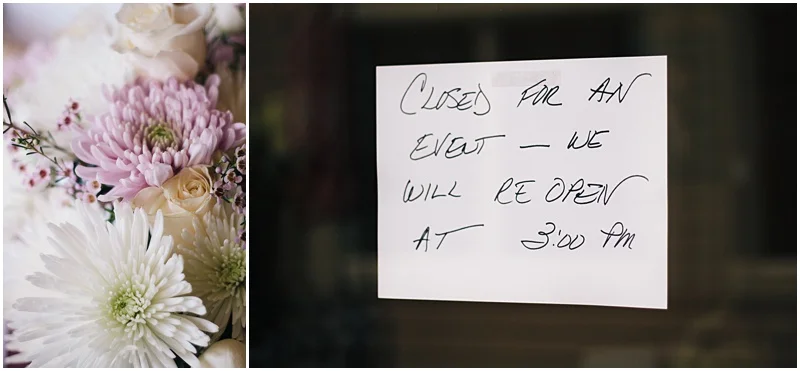 CLOSED FOR AN
EVENT — WE
WILL RE OPEN
AT 3:00 PM